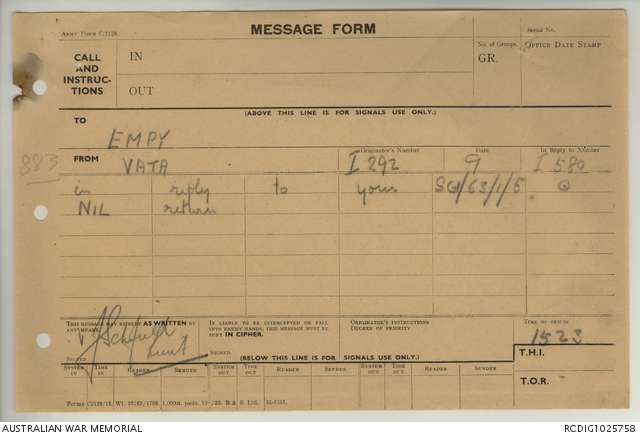 ARMY FORM C.2128.
MESSAGE FORM
Serial No.
CALL AND INSTRUC-TIONS
IN
OUT
No. of Groups.
GR.
OFFICE DATE STAMP
(ABOVE THIS LINE IS FOR SIGNALS USE ONLY.)
TO
EMPY
883
FROM
VATA
Originator's Number
I 292
Date
9
In Reply to Number
I 580
in reply to your SGI/63/1/5 @
NIL return
THIS MESSAGE MAY BE SENT AS WRITTEN BY ANY MEANS.
IF LIABLE TO BE INTERCEPTED OR FALL INTO ENEMY HANDS, THIS MESSAGE MUST BE SENT IN CIPHER.
ORIGINATOR'S INSTRUCTIONS
DEGREE OF PRIORITY
TIME OF ORIGIN
1523
SIGNED
Lieut
SIGNED
(BELOW THIS LINE IS FOR SIGNALS USE ONLY.)
T.H.I.
SYSTEM IN
TIME IN
READER
SENDER
SYSTEM OUT
TIME OUT
READER
SENDER
SYSTEM OUT
TIME OUT
READER
SENDER
T.O.R.
AUSTRALIAN WAR MEMORIAL
RCDIG1025758